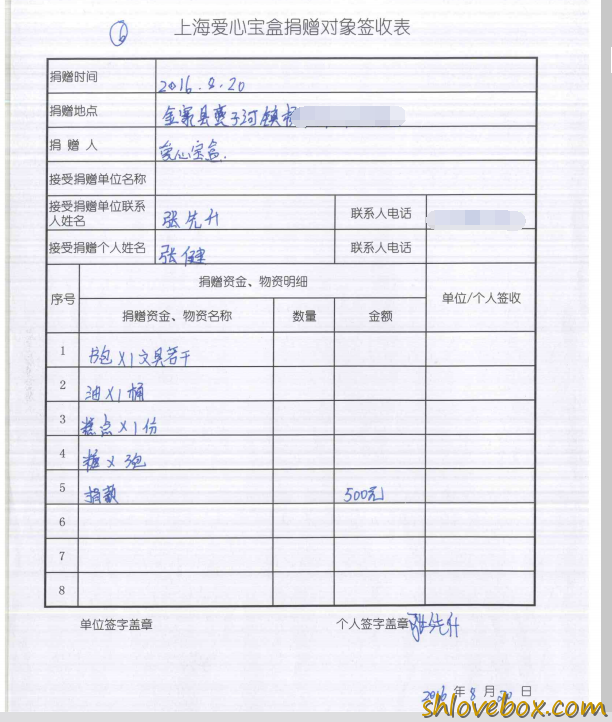 6 上海爱心宝盒捐赠对象签收表
捐赠时间 2016.8.20
捐赠地点 金寨县燕子河镇
捐 赠 人 爱心宝盒.
接受捐赠单位名称
接受捐赠单位联系人姓名 张先升 联系人电话
接受捐赠个人姓名 张健 联系人电话
序号 捐赠资金、物资明细 单位/个人签收
捐赠资金、物资名称 数量 金额
1 书包X1文具若干
2 油X1桶
3 糕点X1份
4 糖X3包
5 捐款 500元
6
7
8
单位签字盖章 个人签字盖章 张先升
2016年8月20日
shlovebox.com